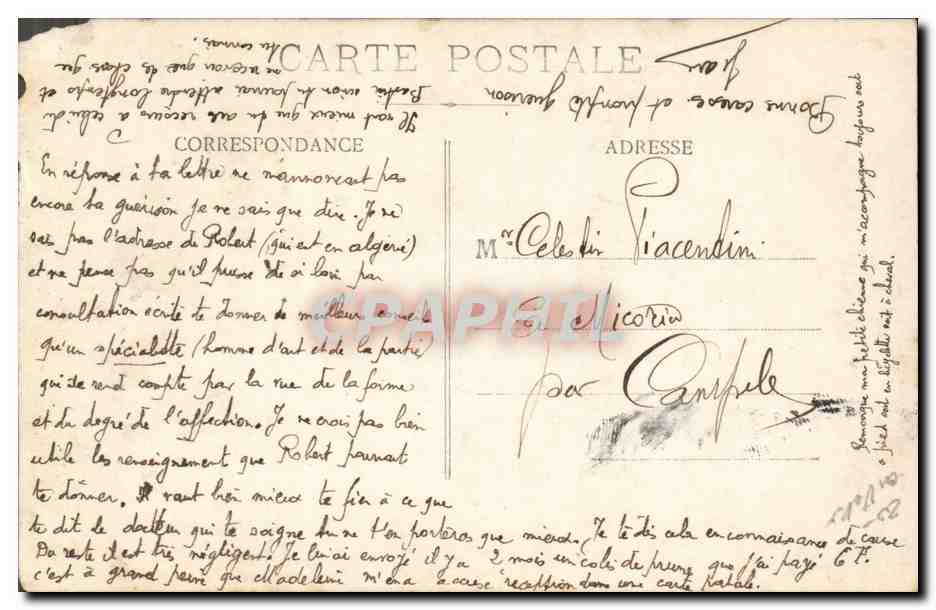 CARTE POSTALE
CORRESPONDANCE
En réponse à ta lettre ne m'annoncant pas
encore ta guérison je ne sais que dire. Je ne
sais pas l'adresse de Robert (qui est en algérie)
et ne pense pas qu'il puisse de si loin par
consultation écrite te donner de meilleur conseil
qu'un spécialiste (homme d'art et de la partie)
qui se rend compte par la vue de la forme
et du degré de l'affection. Je ne crois pas bien
utile les renseignement que Robert pourrait
te donner. Il vaut bien mieux te fier à ce que
te dit le docteur qui te soigne tu ne t'en porteras que mieux. Je te dis cela en connaissance de cause
Du reste il est très négligent. Je lui ai envoyé il y a 2 mois un colis de prune que j'ai payé 6 F.
c'est à grand peine que Madeleine m'en a accusé reception dans une carte postale.
Il vaut mieux que tu aies recours à celui de
Bastia sinon tu pourrais attendre longtemps et
ne recevoir que de choses que
tu connais.
Bonne caresse et prompte guérison
Jean
ADRESSE
Mr Celestin Piacentini
par Campile
Remarque ma petite chienne qui m'accompagne toujours soit
à pied soit en bicyclette soit à cheval.
CPAPHIL